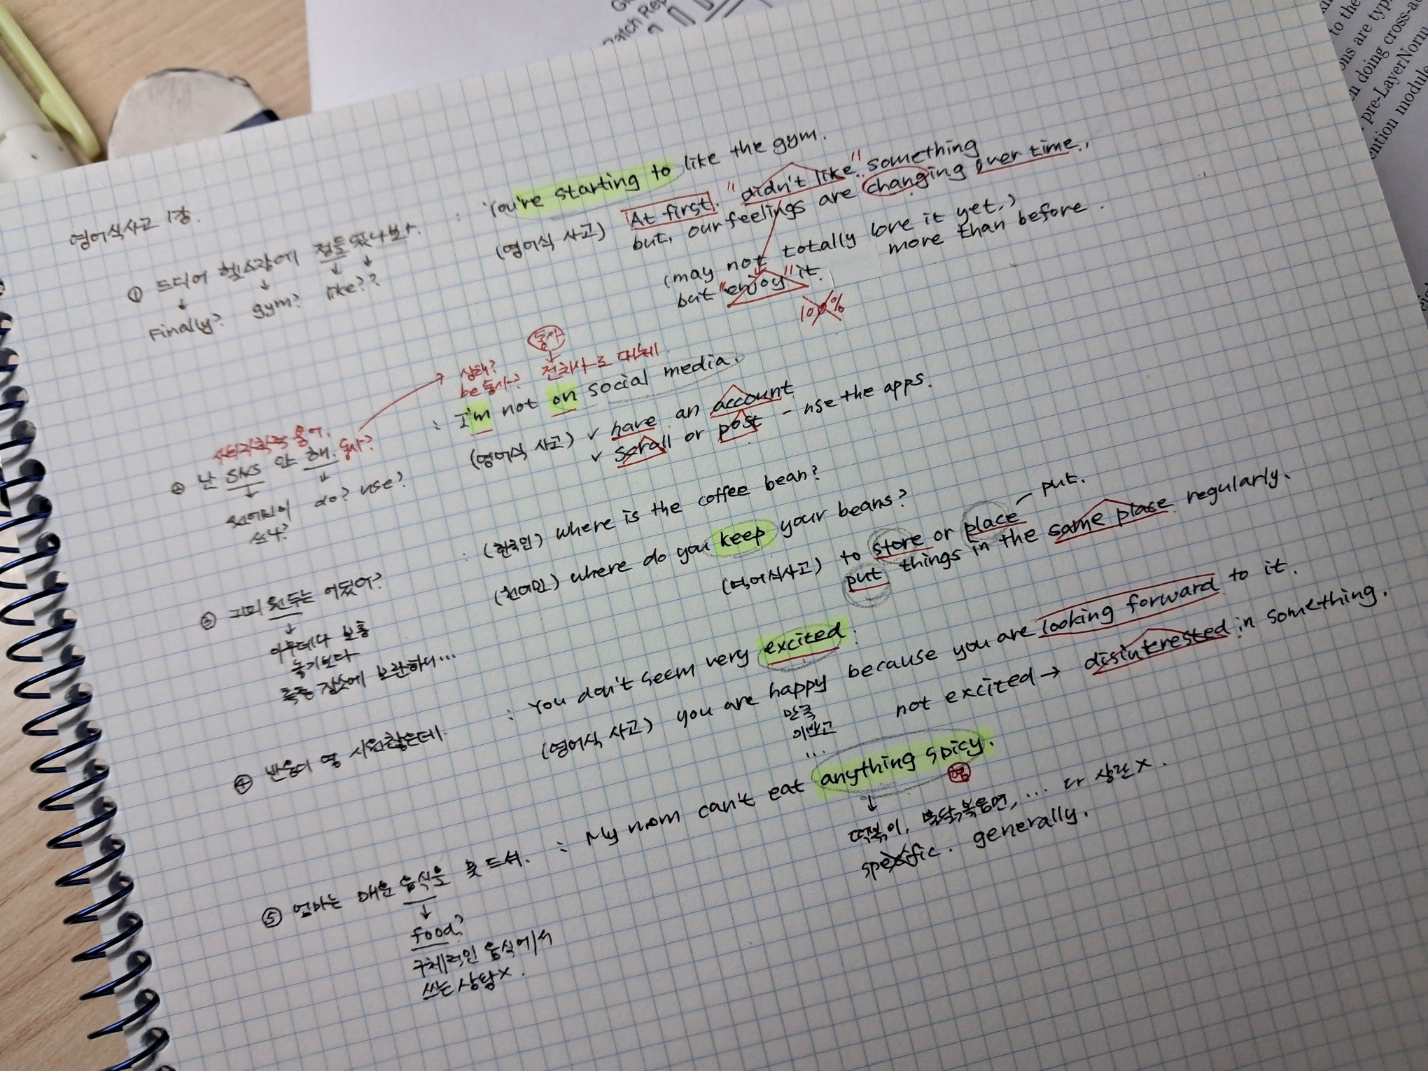 영어식사고 1강.
① 드디어 헬스장에 정들었나보다.
Finally? gym? like??
: You're starting to like the gym.
(영어식 사고) At first, "didn't like" something
but, our feelings are changing over time.,
(may not totally love it yet,)
but "enjoy" it more than before.
100%
② 난 SNS 안 해. 동사?
원어민이 do? use?
쓰나?
동사
상태? 전치사로 대체
be동사?
: I'm not on social media.
(영어식 사고) ✓ have an account
✓ scroll or post - use the apps.
③ 커피 원두는 어딨어?
아무데나 보통
놓기보다
특정 장소에 보관하니...
: (한국인) where is the coffee bean?
(원어민) where do you keep your beans?
(영어식사고) to store or place - put.
put things in the same place regularly.
④ 반응이 영 시원찮은데
: You don't seem very excited:
(영어식 사고) you are happy because you are looking forward to it.
만족
이라고
...
not excited → disinterested in something.
⑤ 엄마는 매운 음식을 못 드셔.
food?
구체적인 음식에서
쓰는 상담x.
: My mom can't eat anything spicy.
떡볶이, 불닭볶음면, ... 다 상관x.
specific. generally.
Patch Rep
to the
ons are typ
n doing cross-a
pre-LayerNorm
ention module